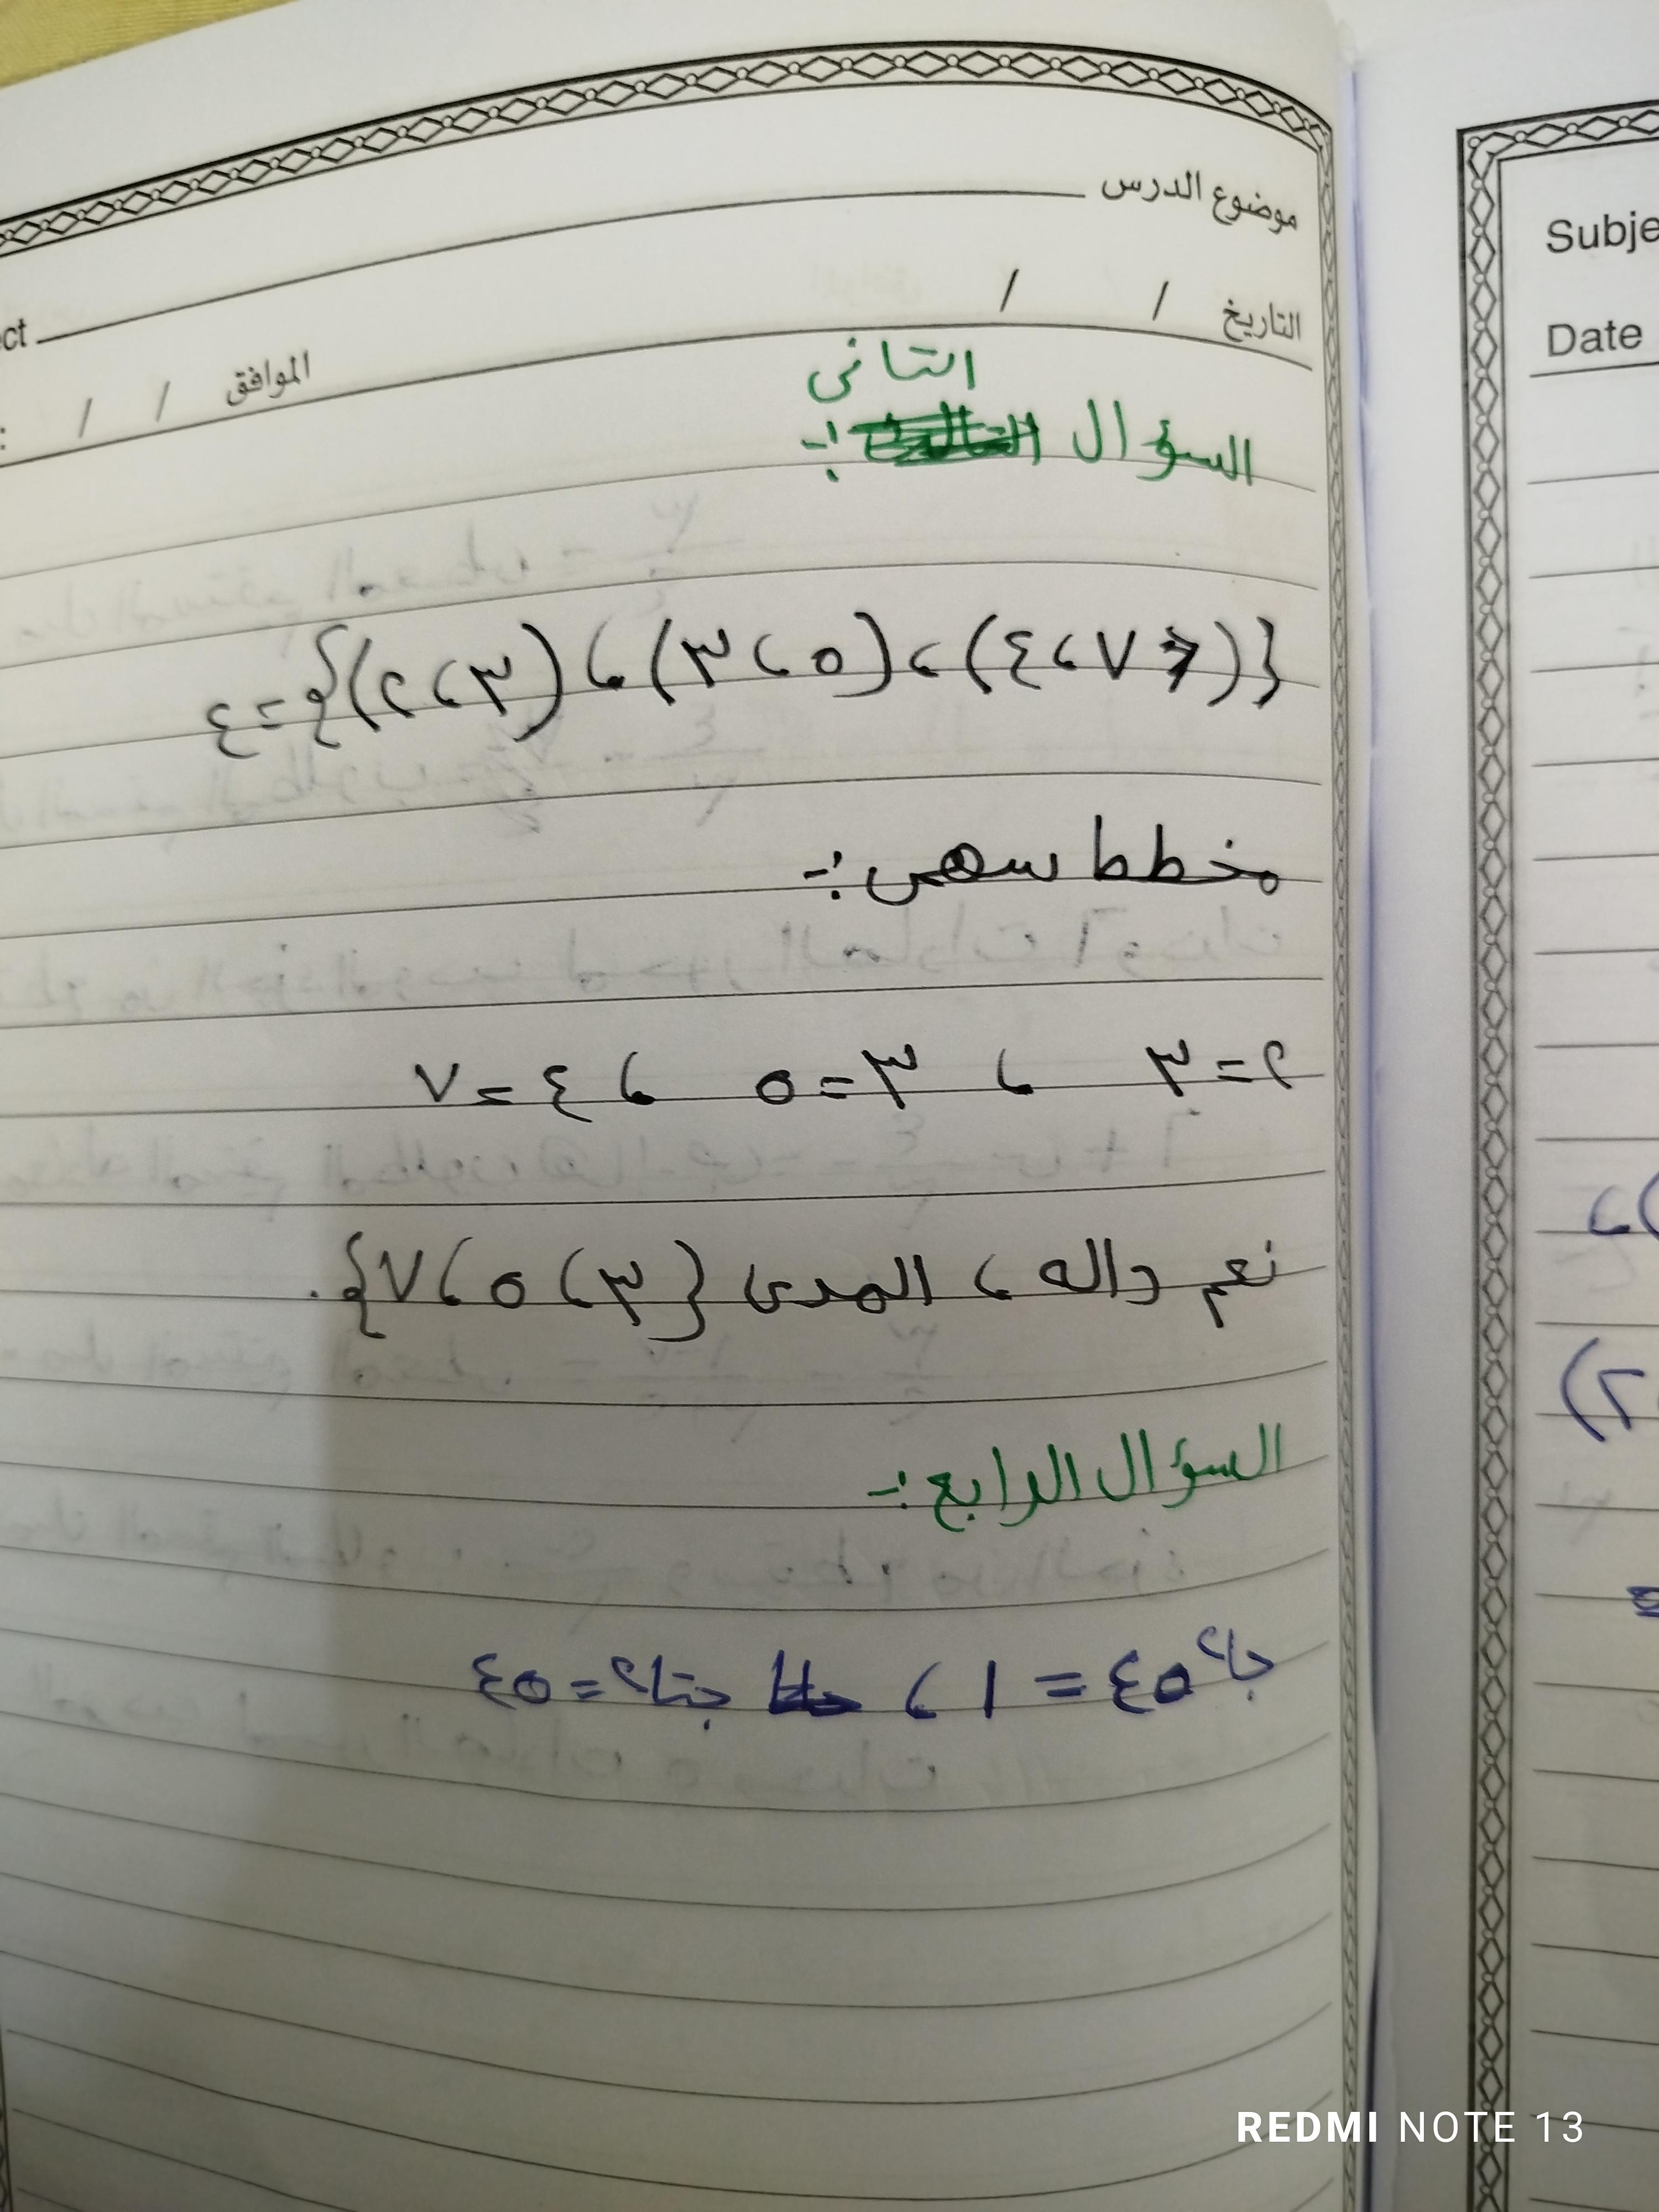 موضوع الدرس
ect
التاريخ / /
الموافق / / :
التانى
السؤال :-
ع = {(٢،٣)، (٣،٥)، (٤،٧)}
مخطط سهمى :-
٢=٣ ، ٣=٥ ، ٤=٧
نعم داله ، المدى {٣،٥،٧}.
السؤال الرابع :-
جا٢ ٤٥ = ١ ، جتا٢ = ٤٥
Subje
Date
REDMI NOTE 13